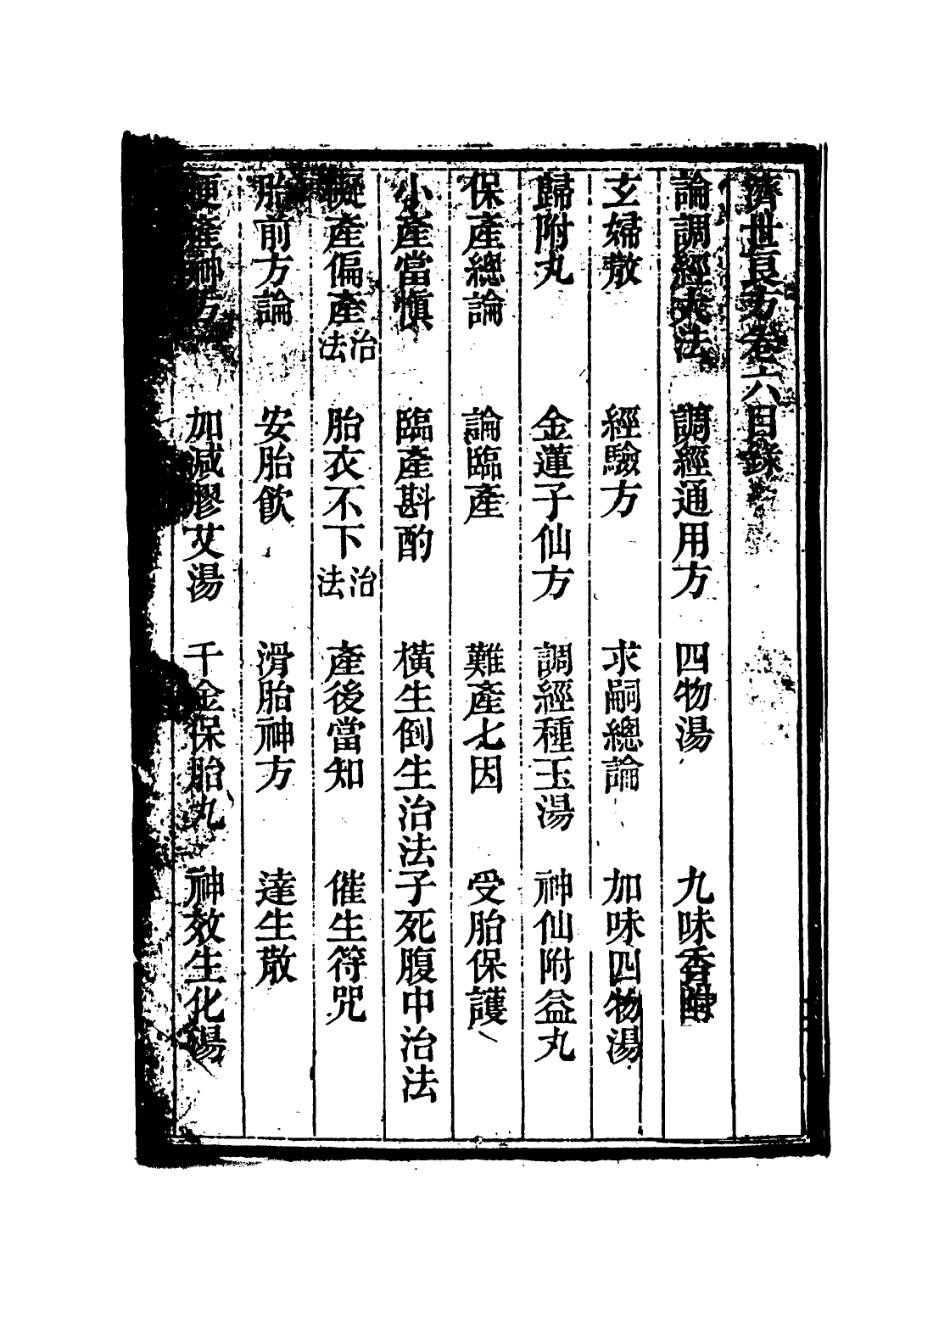 濟世良方卷六目錄
論調經大法 調經通用方 四物湯 九味香附
玄婦散 經驗方 求嗣總論 加味四物湯
歸附丸 金蓮子仙方 調經種玉湯 神仙附益丸
保產總論 論臨產 難產七因 受胎保護
小產當慎 臨產斟酌 橫生倒生治法 子死腹中治法
礙產偏產治法 胎衣不下治法 產後當知 催生符咒
胎前方論 安胎飲 滑胎神方 達生散
便產神方 加減膠艾湯 千金保胎丸 神效生化湯